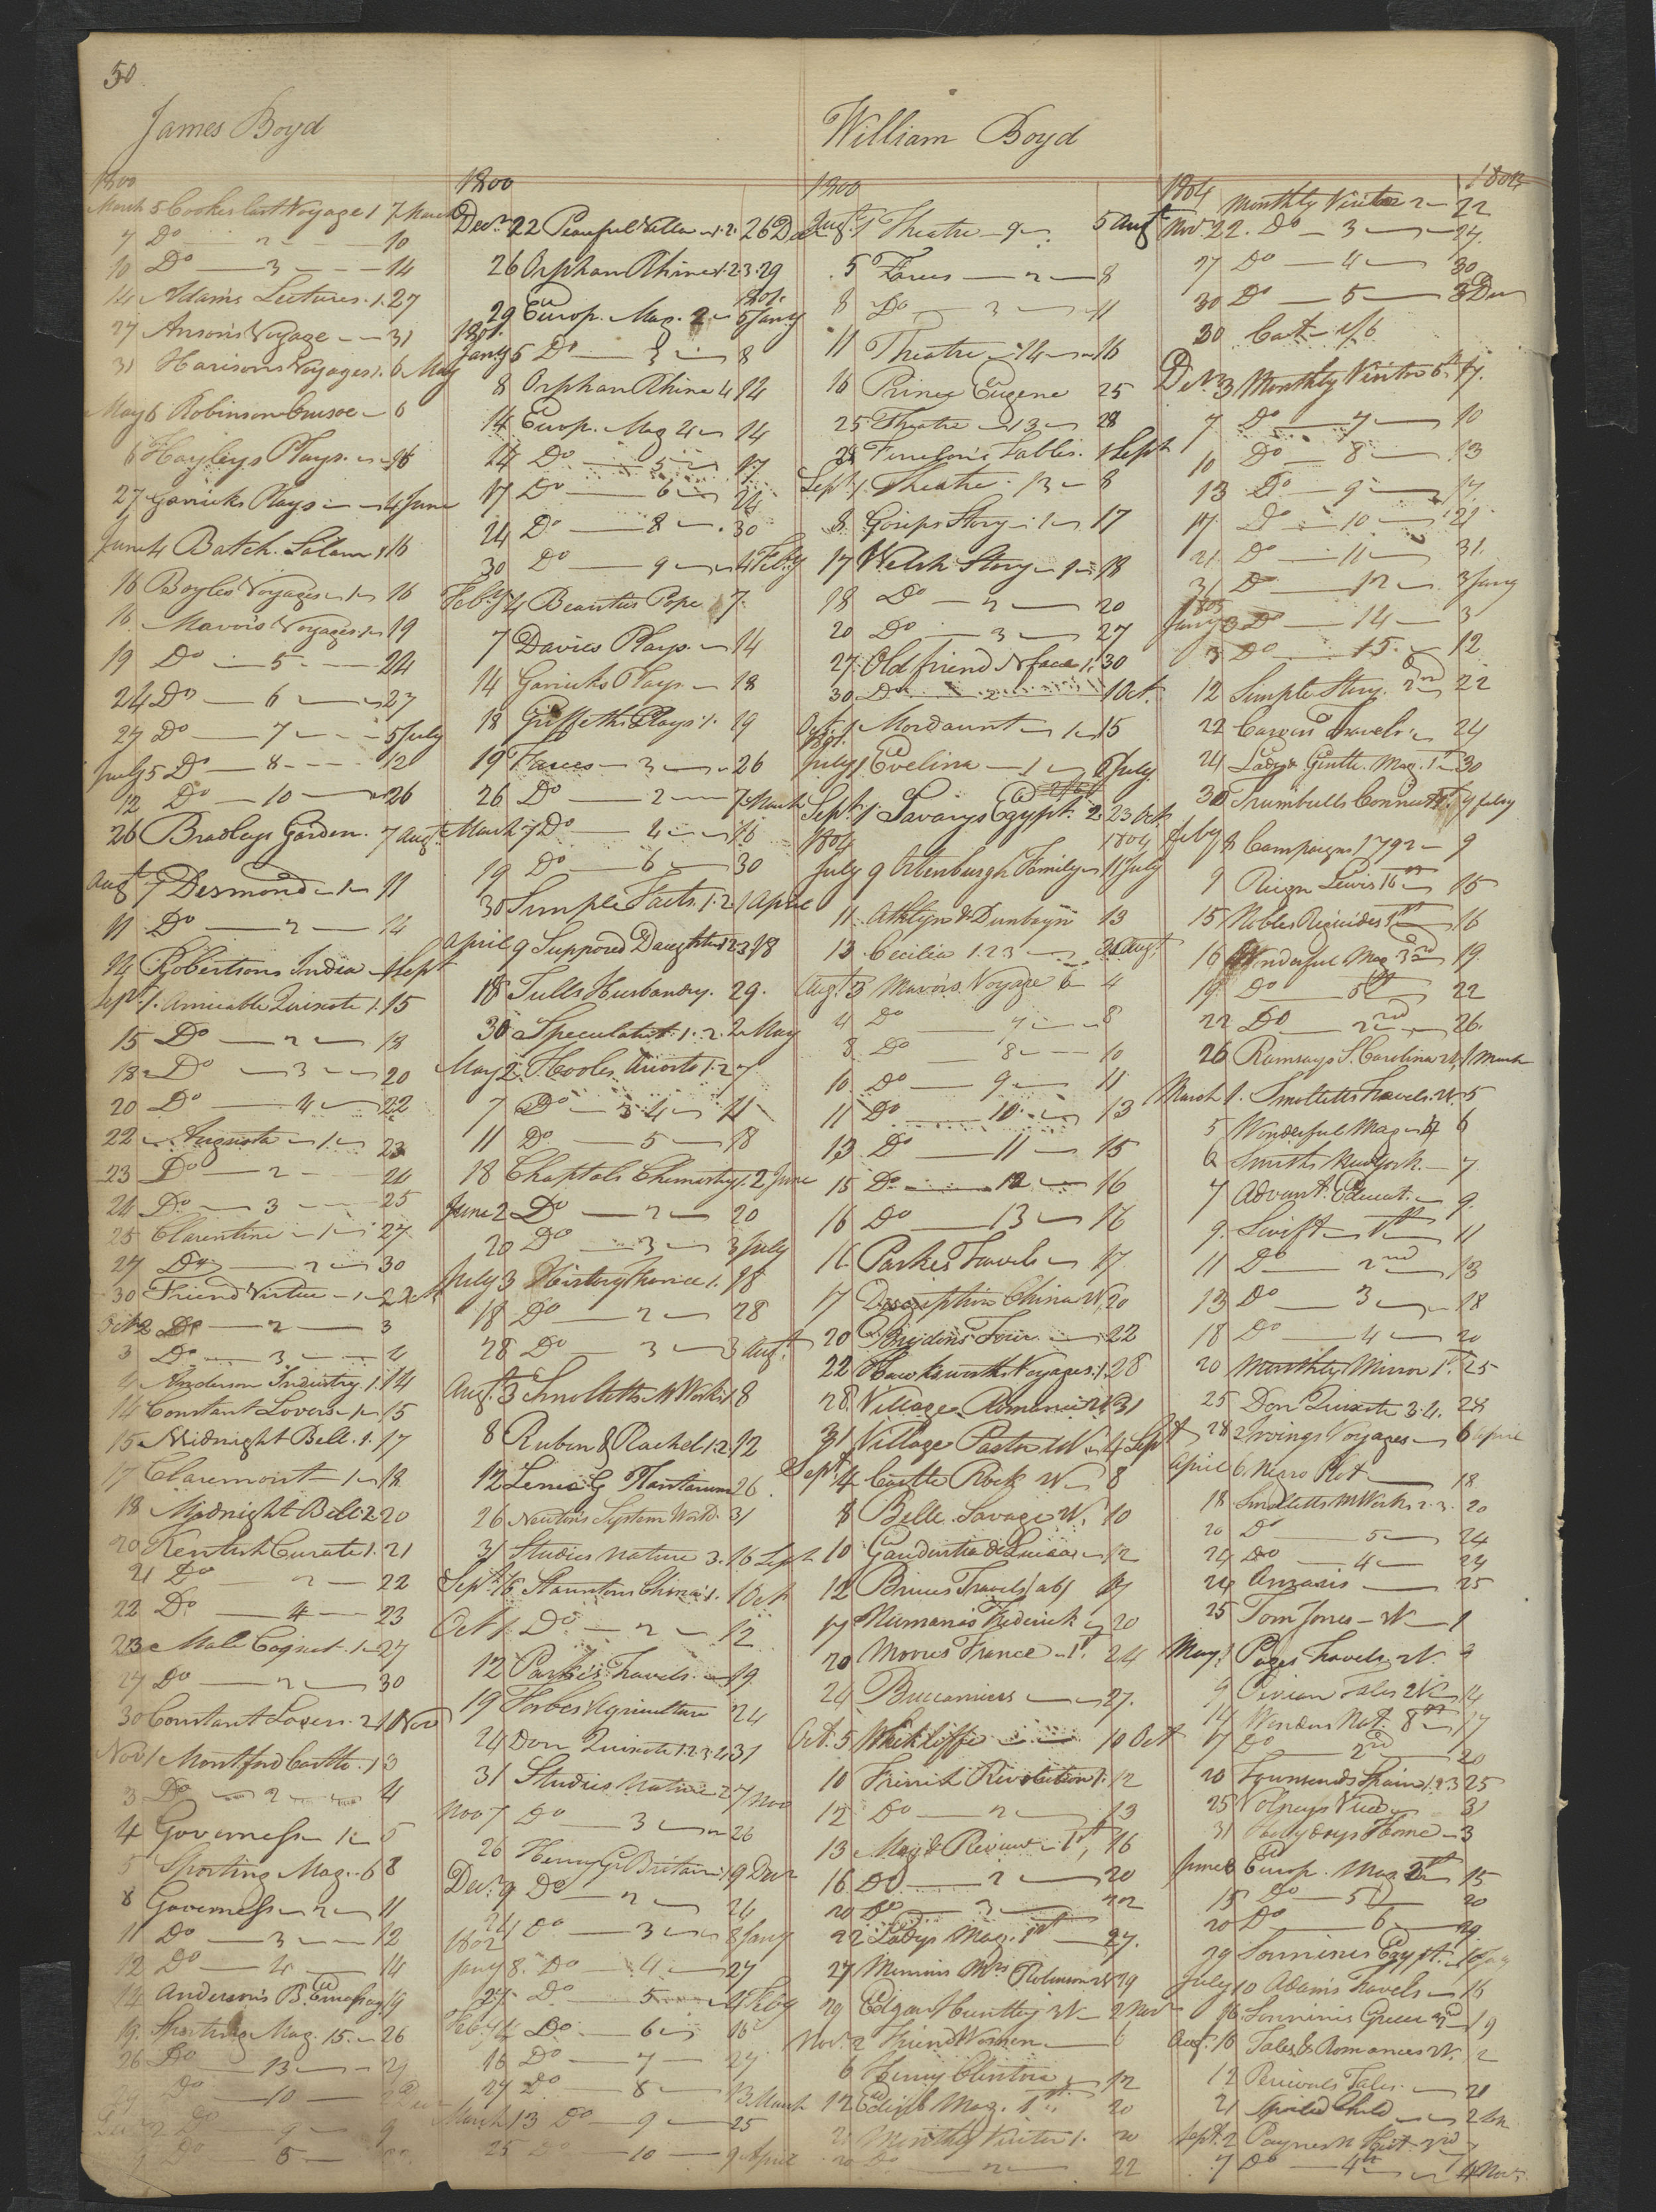 50
James Boyd
1800
March 5 Cookes last Voyage 1 7 March
7 Do 2 10
10 Do 3 14
14 Adams Lectures. 1. 27
27 Ansons Voyage 31
31 Harisons Voyages 1. 6 May
May 6 Robinson Crusoe 6
6 Hayleys Plays. 16
27 Garricks Plays 4 June
June 4 Batch. Salam 1 16
16 Boyles Voyages 1 16
16 Mavors Voyages 1 19
19 Do 5 24
24 Do 6 27
27 Do 7 5 July
July 5 Do 8 12
12 Do 10 26
26 Bradleys Garden. 7 Augt
Augt 7 Desmond 1 11
11 Do 2 14
14 Robertsons India 1 Sept
Sept 1. Amicable Quixote 1. 15
15 Do 2 18
18 Do 3 20
20 Do 4 22
22 Augusta 1 23
23 Do 2 24
24 Do 3 25
25 Clarentine 1 27
27 Do 2 30
30 Friend Virtue 1 2 Oct
Oct 2 Do 2 3
3 Do 3 4
4 Anderson Industry. 1. 14
14 Constant Lovers 1 15
15 Midnight Bell. 1. 17
17 Claremont 1 18
18 Midnight Bell 2 20
20 Kentish Curate 1. 21
21 Do 2 22
22 Do 4 23
23 Male Coquet. 1 27
27 Do 2 30
30 Constant Lovers. 2 1 Nov
Nov 1 Montford Castle. 1 3
3 Do 2 4
4 Governess 1 5
5 Sporting Mag. 6 8
8 Governess 2 11
11 Do 3 12
12 Do 4 14
14 Anderson's B. Embassy 19
19. Sporting Mag. 15. 26
26 Do 13
Do 10
Do 9 9
Do 8
1800
Decr 22 1. 2. 26 De
26 Orphan Rhine 1. 2. 3. 29
1801.
29 Europ. Mag. 2 5 Jany
1801.
Jany 5 Do 3 8
8 Orphan Rhine 4 14
14 Europ. Mag 4 14
14 Do 5 17
17 Do 6 24
24 Do 8 30
30 Do 9 4 Feby
Feby 4 Beauties Pope 7.
7 Davies Plays. 14
14 Garricks Plays 18
18 Griffeths Plays 1. 19
19 Farces 3 26
26 Do 2 7 March
March 7 Do 4 16
19 Do 6 30
30 Simple Facts. 1. 2 1 April
April 9 Supposed Daughter 1 2 3 18
18 Tulls Husbandry. 29.
30 Speculator. 1. 2. 2 May
May 2 Hooles Ariosto 1. 2 7
7 Do 3 4 11
11 Do 5 18
18 Chaptals Chemistry 1. 2 June
June 2 Do 2 20
20 Do 3 3 July
July 3 History 1. 18
18 Do 2 28
28 Do 3 3 Augt
Augt 3 Smolletts M Works 1 8
8 Ruben & Rachel 1. 2 12
12 26
26 Newtons System World. 31
31 Studies Nature 3. 16 Sept
Sept 16 Stauntons China 1. 1 Oct
Oct 1. Do 2 12
12 Parkes Travels. 19.
19 Forbes Agriculture 24
24 Don Quixote 1. 2. 3. 4 31
31 Studies Nature 2 7 Nov
Nov 7 Do 3 26
26 Henry G Britain 1 9 Decr
Decr 9 Do 2 24
24 Do 3 8 Jany
1802
Jany 8. Do 4 27
27. Do 5 4 Feby
Feby 4 Do 6 16
16 Do 7 27
27 Do 8 13 March
March 13 Do 9 25
25 Do 10 9 April
William Boyd
1800
Augt 1 Theatre 9 5 Augt
5 Farces 2 8
8 Do 3 11
11 Theatre 14 16
16 Prince Eugene 25
25 Theatre 13 28
28 Fenelon's Fables. 1 Sept
Sept 1. Theatre. 13 8
8 Gossips Story 1 17
17 Welsh Story 1 18
18 Do 2 20
20 Do 3 27
27. Old friend N face 1. 30
30 Do 1 Oct.
Oct. 1 Mordaunt 1 15
1801.
July 1 Evelina 1 July
Sept. 1. Savarys Egypt. 2 23 Oct.
1804 1804
July 9 Ortenburgh Family 11 July
11 Athlyn & Dunbayn 13
13 Cecilia 1. 2 3 Augt.
Augt 3 Mavors Voyage 6 4
4 Do 7 8
8 Do 8 10
10. Do 9 11
11 Do 10 13
13 Do 11 15
15 Do 12 16
16 Do 13 16
16. Parkes Travels 17.
17 Description China 20
20 Brydons Tour 22
22 Hawksworths Voyages. 1. 28
28. Village Romance 31
31 Village Pastor 4 Sept
Sept 4 Castle Rock 8
8 Belle Savage 10
10 Gaudentia di Lucca 12
12 Bruces Travels (ab) 17
17 Numancs Frederick 20
20 Moores France 1. 24
24 Buccaniers 27.
Oct. 5 Whitcliffe 10 Oct
10 French Revolution 1. 12
12 Do 2 13
13 Mag & Review 1st, 16
16 Do 2 20
20 Do 3 22
22 Ladys Mag. 1st 27.
27 Memoirs Mrs Robinson 29
29 Edgar Huntley 2 Nov
Nov. 2 6
6 Fanny Clinton 12
12 Edinb Mag. 1st 20
20 Monthly Visitor 1. 20
20 Do 2 22
1804 1804
Monthly Visitor 2 22
Nov 22. Do 3 27.
27 Do 4 30
30 Do 5 3 Dec
30 Cat 1/6
Decr 3 Monthly Visitor 6th 7.
7 Do 7 10
10 Do 8 13
13 Do 9 17.
17. Do 10 21
21 Do 11 31.
31 Do 12 3 Jany
1805
Jany 3 Do 14 3
3 Do 15. 12
12 Simple Story. 2nd 22
22 Carvers Travels. 24
24 Lady & Gentle. Mag. 1st 30
30 Trumbulls Connectt. 9 Feby
Feby 8 Campaigns 1792 9
9 Reign Lewis 16th 15
15 Nobles Regicides 1st 16
16 Wonderful Mag 3rd 19.
19. Do 5th 22
22 Do 2nd 26.
26 Ramsays S. Carolina 1 March
March 1. Smolletts Travels. 5
5 Wonderful Mag. 4 6
6 Smiths New York. 7.
7 Advant. Educat. 9.
9. Swift 1st 11
11 Do 2nd 13
13 Do 3 18
18 Do 4 20
20 Monthly Mirror 1st. 25
25 Don Quixote 3. 4. 28
28 Irvings Voyages 6 April
April 6. Negro Plot 18
18 Smolletts M Works 2. 3. 20
20 Do 5 24
24 Do 4 24
24 25
25 Tom Jones 1
May 1 Pages Travels. 9
9 Persian Tales 14
14 Wonders Nat. 8th 17
17 Do 2nd 20
20 Townsends Spain 1. 2. 3 25
25 Volneys View 31
31 Home 3
June 3 Europ. Mag. 15
15 Do 5 20
20 Do 6 29
29 Sonninis Egypt. 10 July
July 10 Adams Travels 16
16 Sonninis Greece 19
Augt. 10 Tales & Romances 12
12 Percivals Tales. 21
21 Spoiled Child 2 Sep
Sept. 2 Paynes Hist. 3rd 7
7 Do 4th 4 Nov.